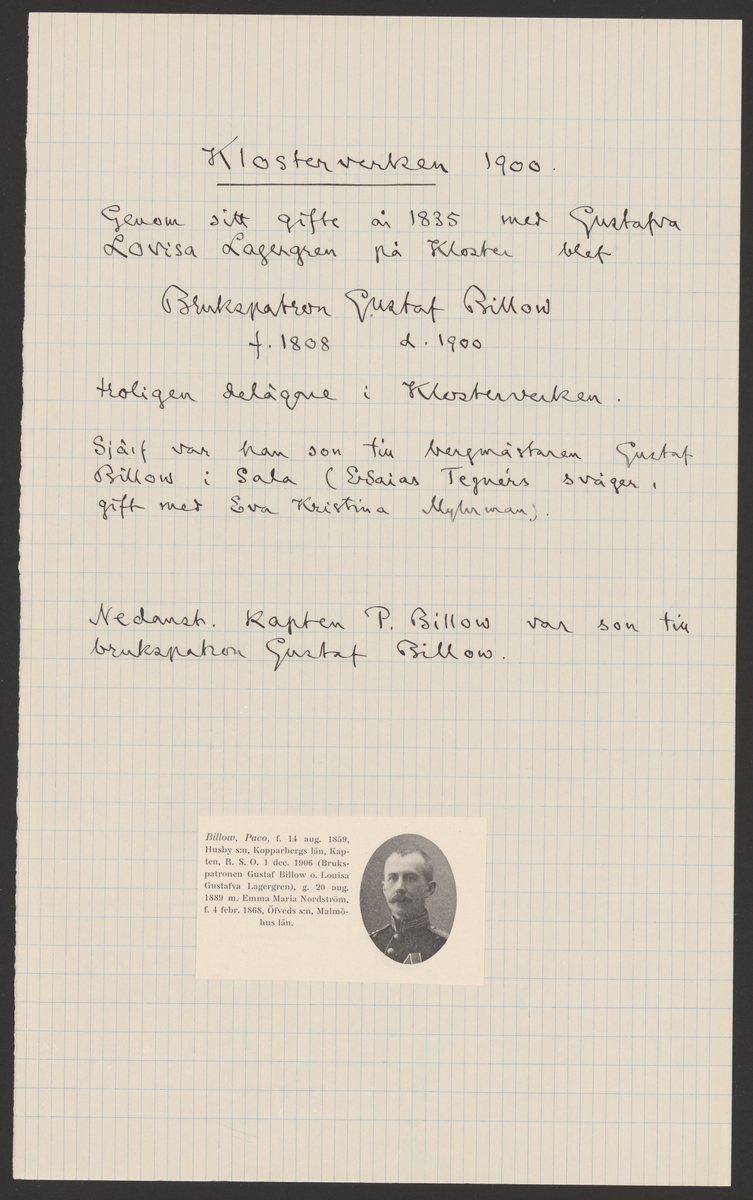 Klosterverken 1900.
Genom sitt gifte år 1835 med Gustafva
Lovisa Lagergren på Kloster blef
Brukspatron Gustaf Billow
f. 1808 d. 1900
troligen delägare i Klosterverken.
Själf var han son till bergmästaren Gustaf
Billow i Sala (Esaias Tegnérs svåger,
gift med Eva Kristina Myhrman).
Nedanst. Kapten P. Billow var son till
brukspatron Gustaf Billow.
Billow, Paco, f. 14 aug. 1859,
Husby s:n, Kopparbergs län, Kap-
ten, R. S. O. 1 dec. 1906 (Bruks-
patronen Gustaf Billow o. Louisa
Gustafva Lagergren), g. 20 aug.
1889 m. Emma Maria Nordström,
f. 4 febr. 1868, Öfveds s:n, Malmö-
hus län.